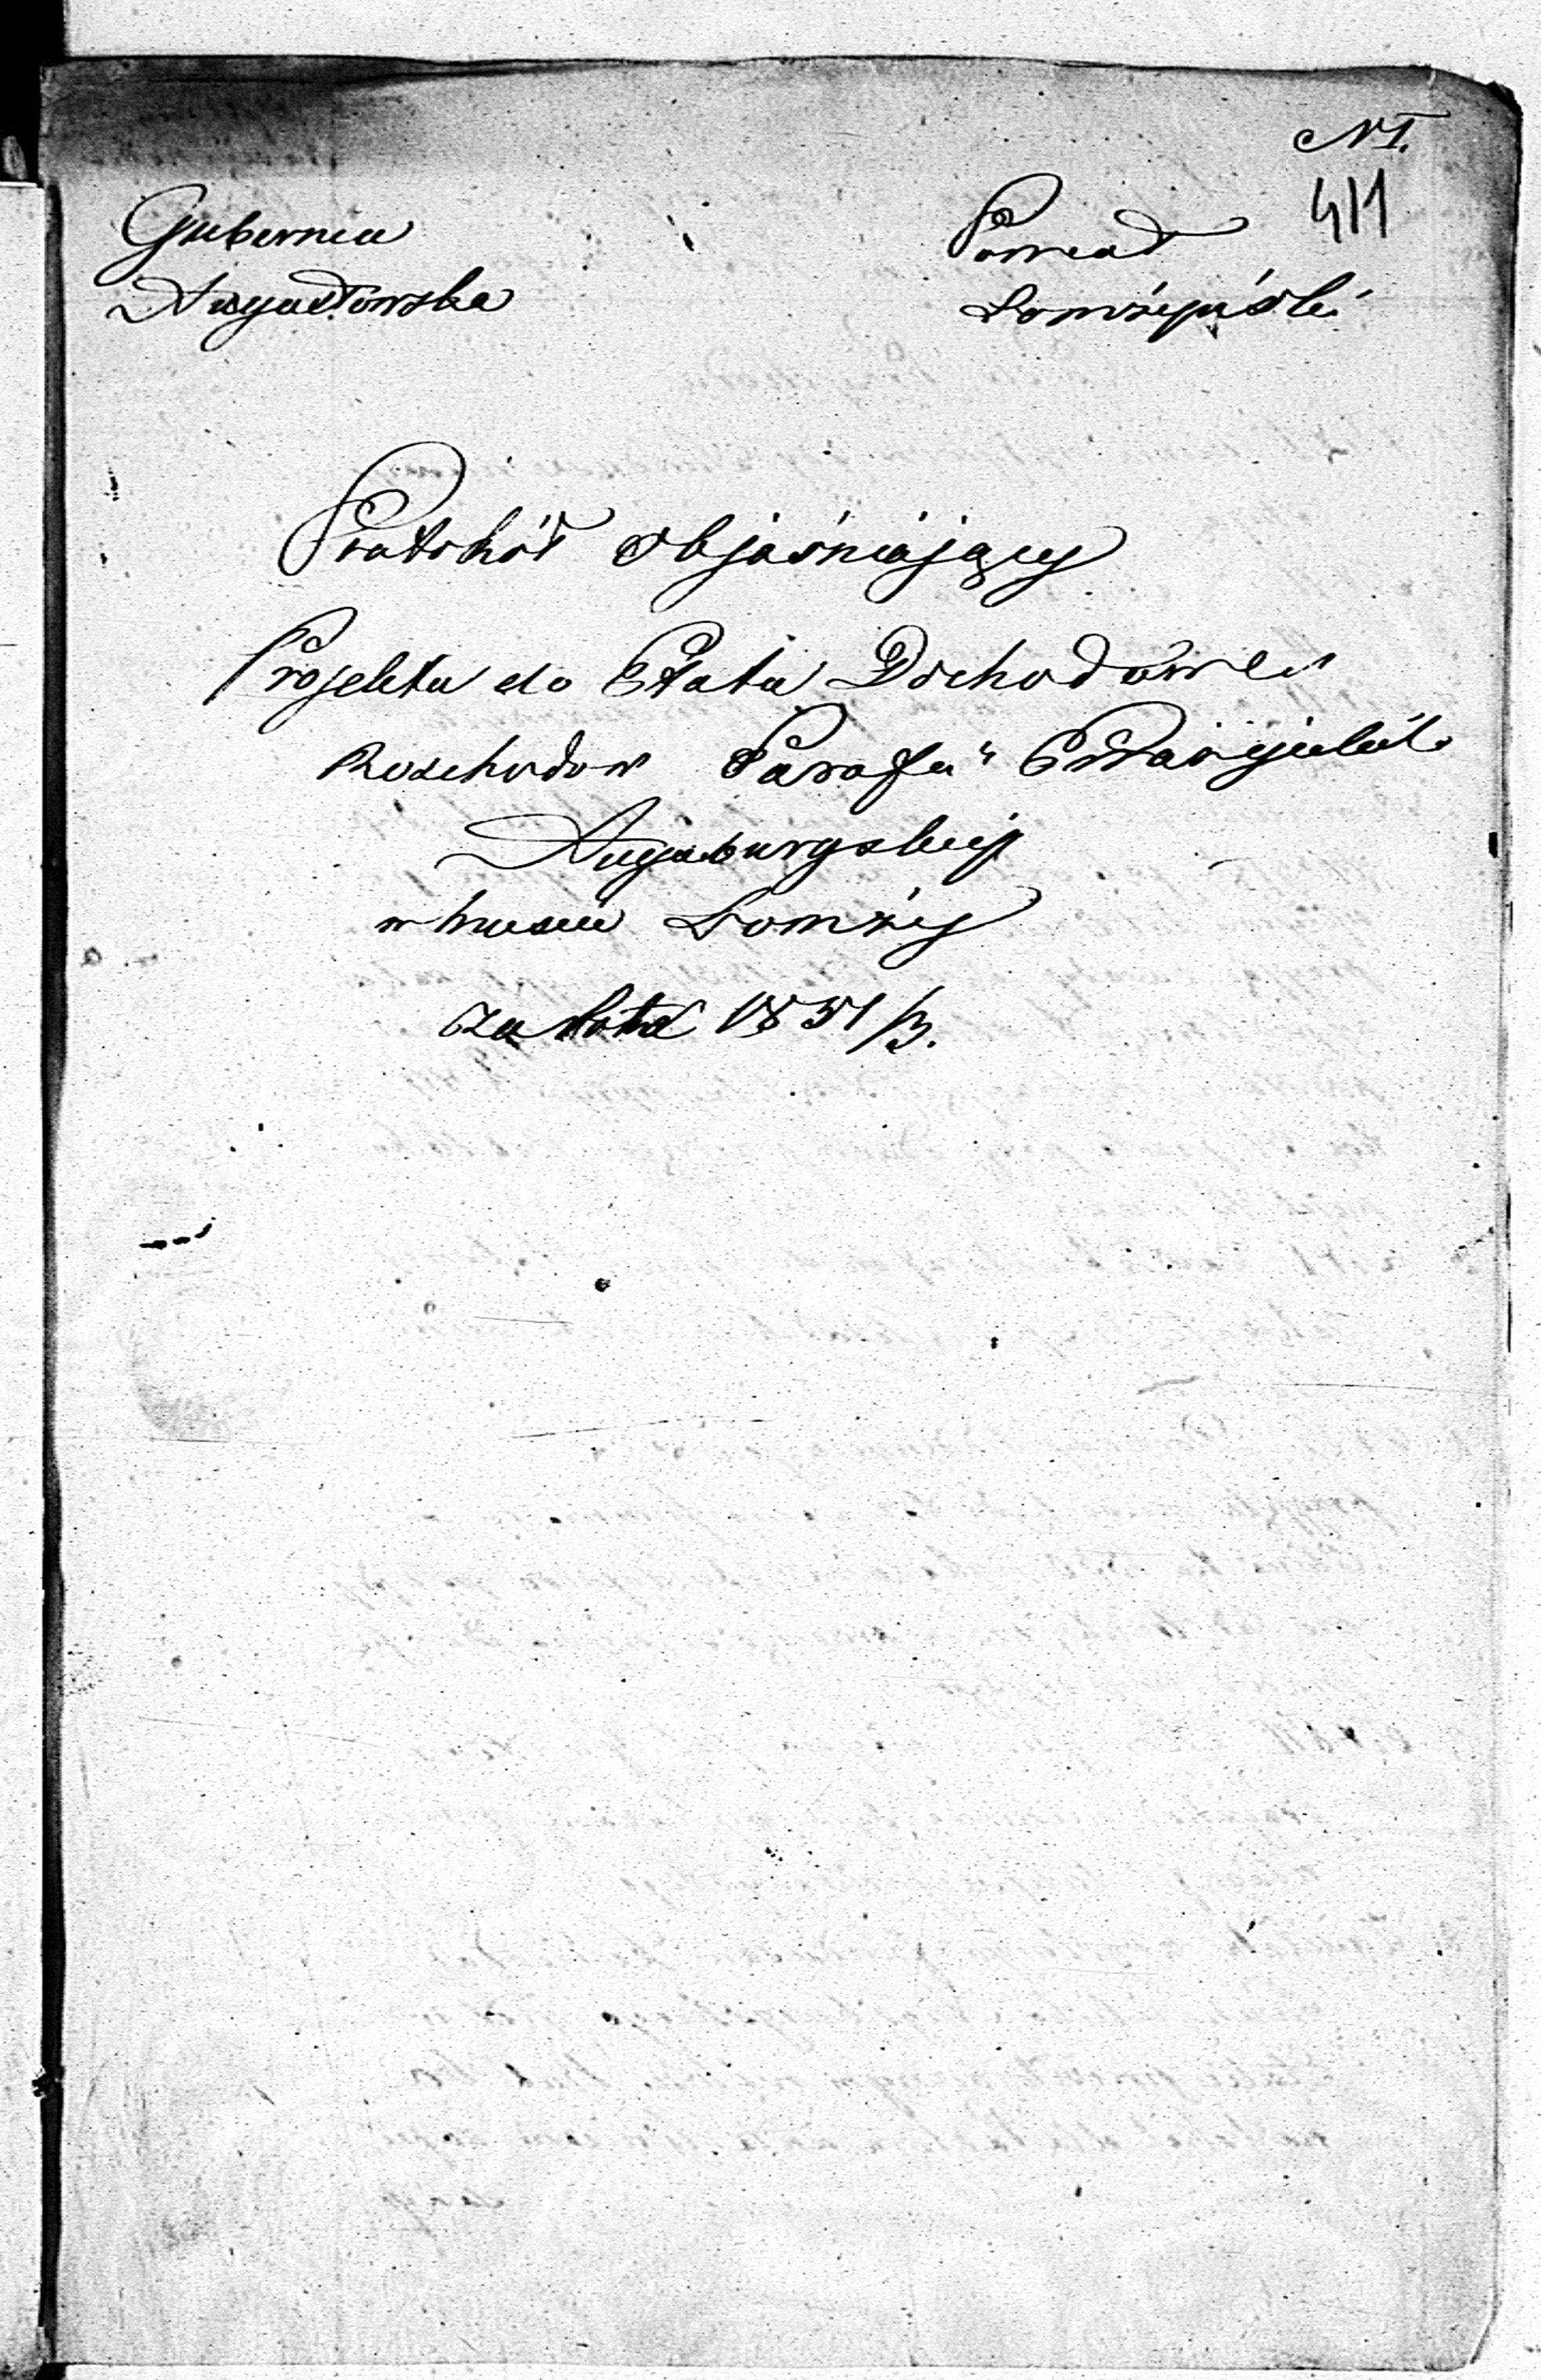 N I.
411
Gubernia
Augustowska
Powiat
Łomżyński
Protokół Objaśniający
Projektu do Etatu Dochodów i
Rozchodów Parafii Ewangielick
Augsburgskiej
w mieście Łomży
za lata 1851/3.